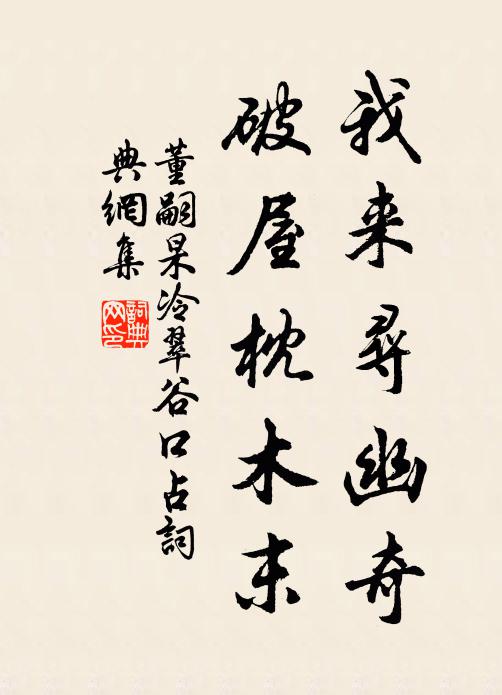 我来尋幽奇
破屋枕木末
董嗣杲冷翠谷口占詞
典網集
詞典網印